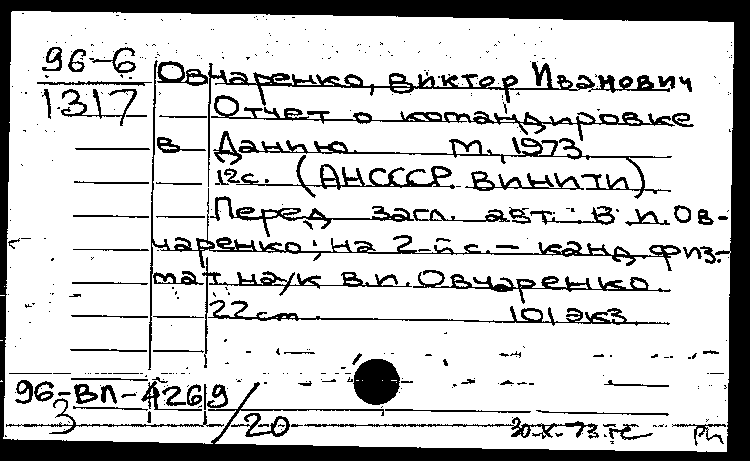 96-6
1317
Овчаренко, Виктор Иванович
Отчет о командировке
в Данию. М., 1973.
12с. (АНСССР. ВИНИТИ).
Перед загл. авт.: В.П.Ов-
чаренко; на 2-й с. - канд. физ.-
мат. наук В.П. Овчаренко.
22 см. 101 экз.
96-ВЛ-4269
3
/20
30-X-73.